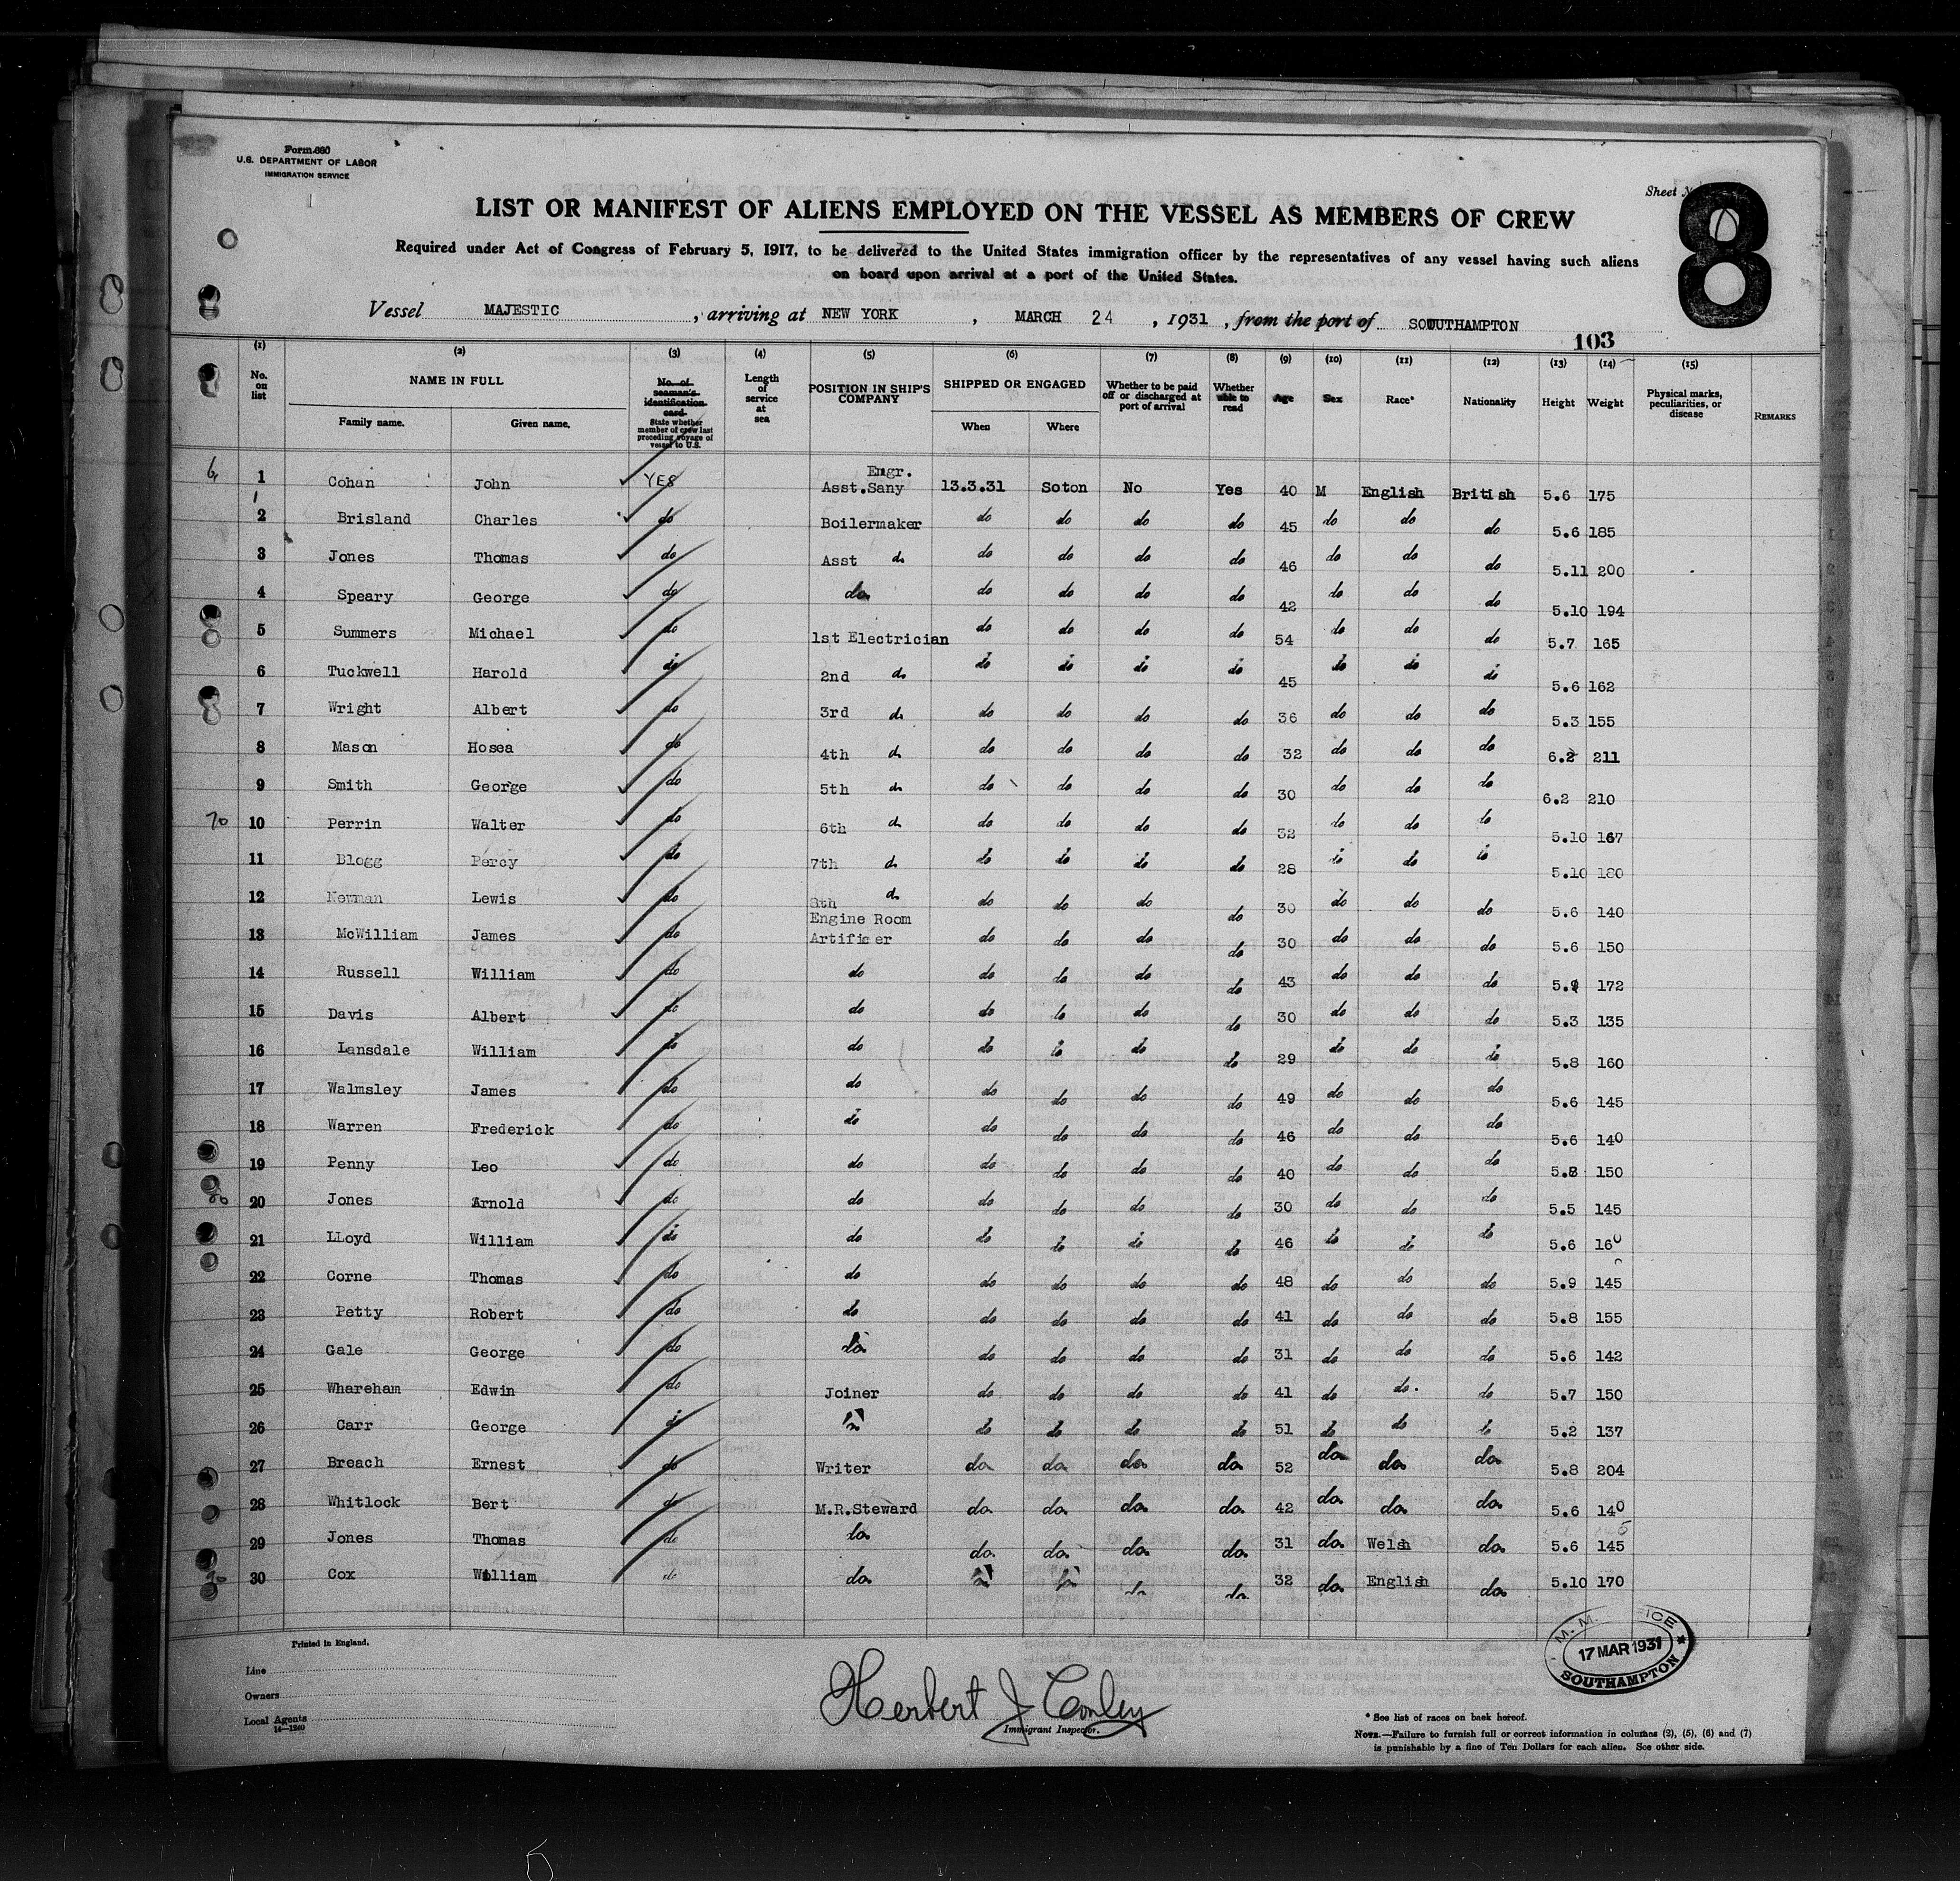 Form 680
U.S. DEPARTMENT OF LABOR
IMMIGRATION SERVICE
Sheet No.
8
LIST OR MANIFEST OF ALIENS EMPLOYED ON THE VESSEL AS MEMBERS OF CREW
Required under Act of Congress of February 5, 1917, to be delivered to the United States immigration officer by the representatives of any vessel having such aliens
on board upon arrival at a port of the United States.
Vessel MAJESTIC , arriving at NEW YORK , MARCH 24 , 1931 , from the port of SOUTHAMPTON
103
(1) (2) (3) (4) (5) (6) (7) (8) (9) (10) (11) (12) (13) (14) (15)
No. on list NAME IN FULL Family name. Given name. No. of seaman's identification card. State whether member of crew last preceding voyage of vessel to U.S. Length of service at sea POSITION IN SHIP'S COMPANY SHIPPED OR ENGAGED When Where Whether to be paid off or discharged at port of arrival Whether able to read Age Sex Race* Nationality Height Weight Physical marks, peculiarities, or disease REMARKS
1 Cohan John YES Asst.Sany Engr. 13.3.31 Soton No Yes 40 M English British 5.6 175
2 Brisland Charles do Boilermaker do do do do 45 do do do 5.6 185
3 Jones Thomas do Asst do do do do do 46 do do do 5.11 200
4 Speary George do do do do do do 42 do do do 5.10 194
5 Summers Michael do 1st Electrician do do do do 54 do do do 5.7 165
6 Tuckwell Harold do 2nd do do do do do 45 do do do 5.6 162
7 Wright Albert do 3rd do do do do do 36 do do do 5.3 155
8 Mason Hosea do 4th do do do do do 32 do do do 6.2 211
9 Smith George do 5th do do do do do 30 do do do 6.2 210
70 10 Perrin Walter do 6th do do do do do 32 do do do 5.10 167
11 Blogg Percy do 7th do do do do do 28 do do do 5.10 180
12 Newman Lewis do 8th do do do do do 30 do do do 5.6 140
13 McWilliam James do Engine Room Artificer do do do do 30 do do do 5.6 150
14 Russell William do do do do do do 43 do do do 5.9 172
15 Davis Albert do do do do do do 30 do do do 5.3 135
16 Lansdale William do do do do do do 29 do do do 5.8 160
17 Walmsley James do do do do do do 49 do do do 5.6 145
18 Warren Frederick do do do do do do 46 do do do 5.6 140
19 Penny Leo do do do do do do 40 do do do 5.8 150
20 Jones Arnold do do do do do do 30 do do do 5.5 145
21 LLoyd William do do do do do do 46 do do do 5.6 160
22 Corne Thomas do do do do do do 48 do do do 5.9 145
23 Petty Robert do do do do do do 41 do do do 5.8 155
24 Gale George do do do do do do 31 do do do 5.6 142
25 Whareham Edwin do Joiner do do do do 41 do do do 5.7 150
26 Carr George do do do do do do 51 do do do 5.2 137
27 Breach Ernest do Writer do do do do 52 do do do 5.8 204
28 Whitlock Bert do M.R.Steward do do do do 42 do do do 5.6 140
29 Jones Thomas do do do do do do 31 do Welsh do 5.6 145
30 Cox William do do do do do do 32 do English do 5.10 170
Printed in England.
Line
Owners
Local Agents
14-1240
Herbert J Conley
Immigrant Inspector.
M. M. OFFICE
17 MAR 1931
SOUTHAMPTON
* See list of races on back hereof.
NOTE.—Failure to furnish full or correct information in columns (2), (5), (6) and (7)
is punishable by a fine of Ten Dollars for each alien. See other side.